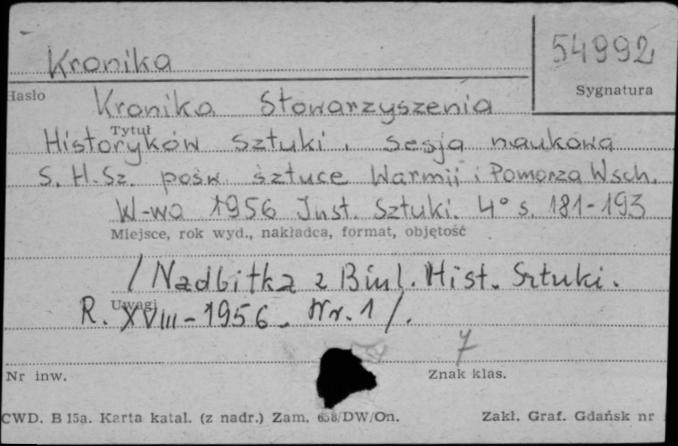 Kronika
54992
Hasło
Sygnatura
Kronika Stowarzyszenia
Tytuł
Historyków Sztuki. Sesja naukowa
S. H. Sz. pośw. sztuce Warmii i Pomorza Wsch.
W-wa 1956 Inst. Sztuki. 4° s. 181-193
Miejsce, rok wyd., nakładca, format, objętość
/Nadbitka z Biul. Hist. Sztuki.
Uwagi
R. XVIII-1956. Nr. 1/.
7
Nr inw.
Znak klas.
CWD. B 15a. Karta katal. (z nadr.) Zam. 658/DW/On.
Zakł. Graf. Gdańsk nr